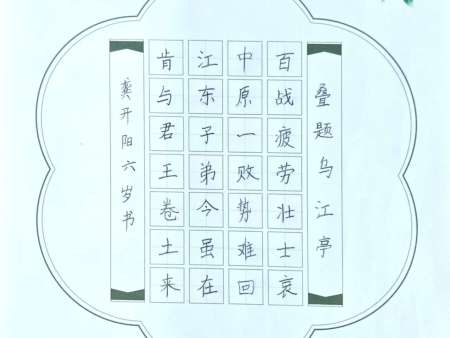 叠题乌江亭
百战疲劳壮士哀
中原一败势难回
江东子弟今虽在
肯与君王卷土来
龚开阳六岁书